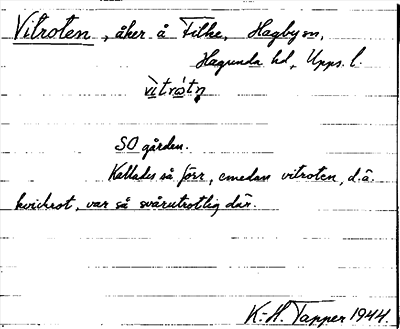 Vitroten, åker å Filke, Hagby sn,
Hagunda hd, Upps. l.
vìtrớtn̥
SO gården.
Kallades så förr, emedan vitroten, d.ä.
kvickrot, var så svårutrotlig där.
K.-H. Tapper 1944.